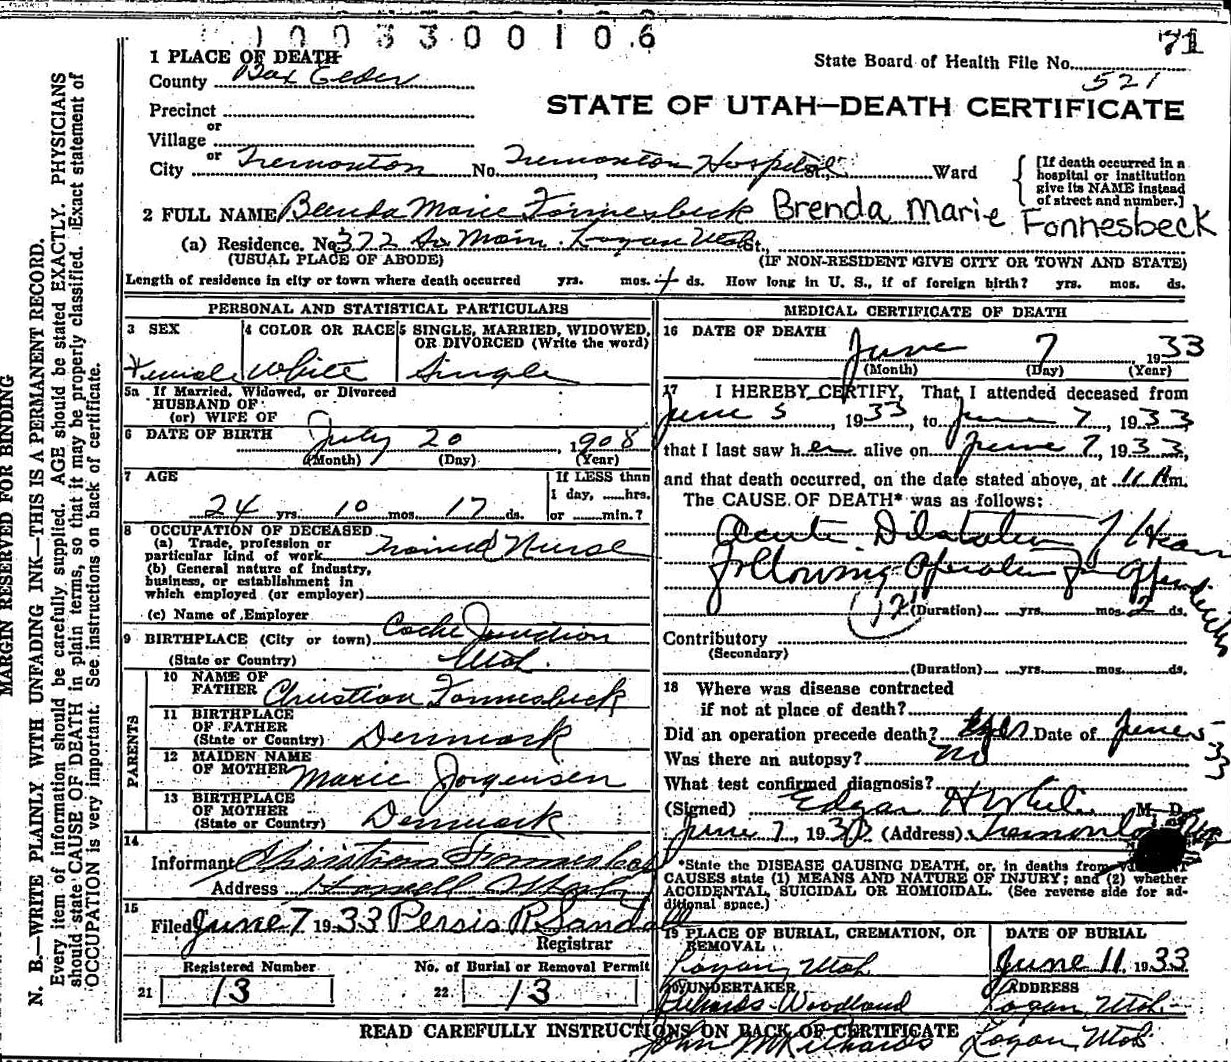 1003300106
71
1 PLACE OF DEATH
State Board of Health File No.
County Box Elder
521
Precinct
STATE OF UTAH—DEATH CERTIFICATE
or
Village
or
City Tremonton No. Tremonton Hospital St., Ward
[If death occurred in a hospital or institution give its NAME instead of street and number.]
2 FULL NAME Brenda Marie Fonnesbeck Brenda Marie Fonnesbeck
(a) Residence. No. 372 So Main. Logan Utah St.,
(USUAL PLACE OF ABODE) (IF NON-RESIDENT GIVE CITY OR TOWN AND STATE)
Length of residence in city or town where death occurred yrs. mos. 4 ds. How long in U. S., if of foreign birth? yrs. mos. ds.
PERSONAL AND STATISTICAL PARTICULARS
3 SEX 4 COLOR OR RACE 5 SINGLE, MARRIED, WIDOWED,
OR DIVORCED (Write the word)
Female White Single
5a If Married, Widowed, or Divorced
HUSBAND OF
(or) WIFE OF
6 DATE OF BIRTH July 20, 1908
(Month) (Day) (Year)
7 AGE If LESS than
1 day, ......hrs.
24 yrs. 10 mos. 17 ds. or ......min.?
8 OCCUPATION OF DECEASED
(a) Trade, profession or
particular kind of work Trained Nurse
(b) General nature of industry,
business, or establishment in
which employed (or employer)
(c) Name of Employer
9 BIRTHPLACE (City or town) Cache Junction
(State or Country) Utah.
PARENTS
10 NAME OF
FATHER Christian Fonnesbeck
11 BIRTHPLACE
OF FATHER
(State or Country) Denmark
12 MAIDEN NAME
OF MOTHER Marie Jorgensen
13 BIRTHPLACE
OF MOTHER
(State or Country) Denmark
14
Informant Christian Fonnesbeck
Address Howell Utah
15
Filed June 7 1933 Persis R Sandall
Registrar
Registered Number No. of Burial or Removal Permit
21 13 22 13
MEDICAL CERTIFICATE OF DEATH
16 DATE OF DEATH
June 7, 1933
(Month) (Day) (Year)
17 I HEREBY CERTIFY, That I attended deceased from
June 5, 1933, to June 7, 1933
that I last saw her alive on June 7, 1933,
and that death occurred, on the date stated above, at 11 A m.
The CAUSE OF DEATH* was as follows:
Acute Dilatation of Heart
following Operation for Appendicitis
121 (Duration) yrs. mos. 2 ds.
Contributory
(Secondary)
(Duration) yrs. mos. ds.
18 Where was disease contracted
if not at place of death?
Did an operation precede death? yes Date of June 5-33
Was there an autopsy? No
What test confirmed diagnosis?
(Signed) Edgar H White M. D.
June 7, 193 (Address) Tremonton
*State the DISEASE CAUSING DEATH, or, in deaths from
CAUSES state (1) MEANS AND NATURE OF INJURY; and (2) whether
ACCIDENTAL, SUICIDAL OR HOMICIDAL. (See reverse side for ad-
ditional space.)
19 PLACE OF BURIAL, CREMATION, OR
REMOVAL
DATE OF BURIAL
Logan, Utah June 11 1933
20 UNDERTAKER ADDRESS
Woodland Logan, Utah.
READ CAREFULLY INSTRUCTIONS ON BACK OF CERTIFICATE
John M Richards Logan Utah
MARGIN RESERVED FOR BINDING
N. B.—WRITE PLAINLY WITH UNFADING INK—THIS IS A PERMANENT RECORD.
Every item of information should be carefully supplied. AGE should be stated EXACTLY. PHYSICIANS
should state CAUSE OF DEATH in plain terms, so that it may be properly classified. Exact statement of
OCCUPATION is very important. See instructions on back of certificate.